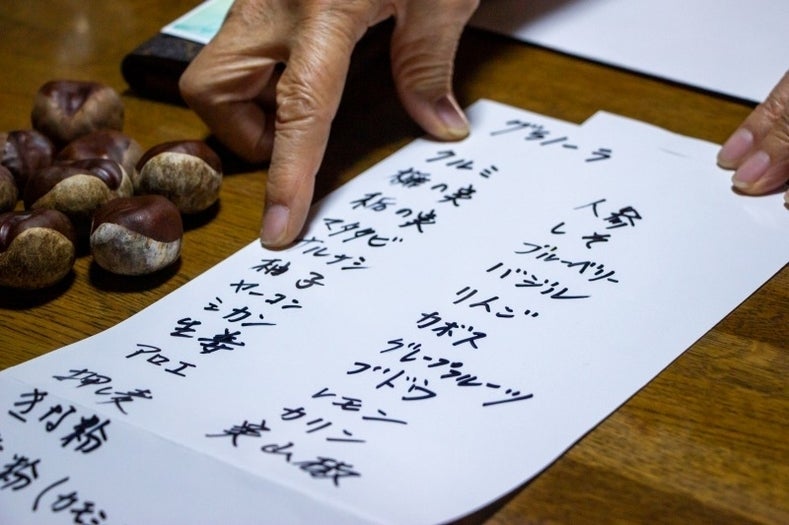 グラノーラ
クルミ
の実
栃の実
マタタビ
サルナシ
柚子
ヤーコン
ミカン
生姜
アロエ
押し麦
きな粉
粉(カモミ
人参
しそ
ブルーベリー
バジル
リンゴ
カボス
グレープフルーツ
ブドウ
レモン
カリン
実山椒